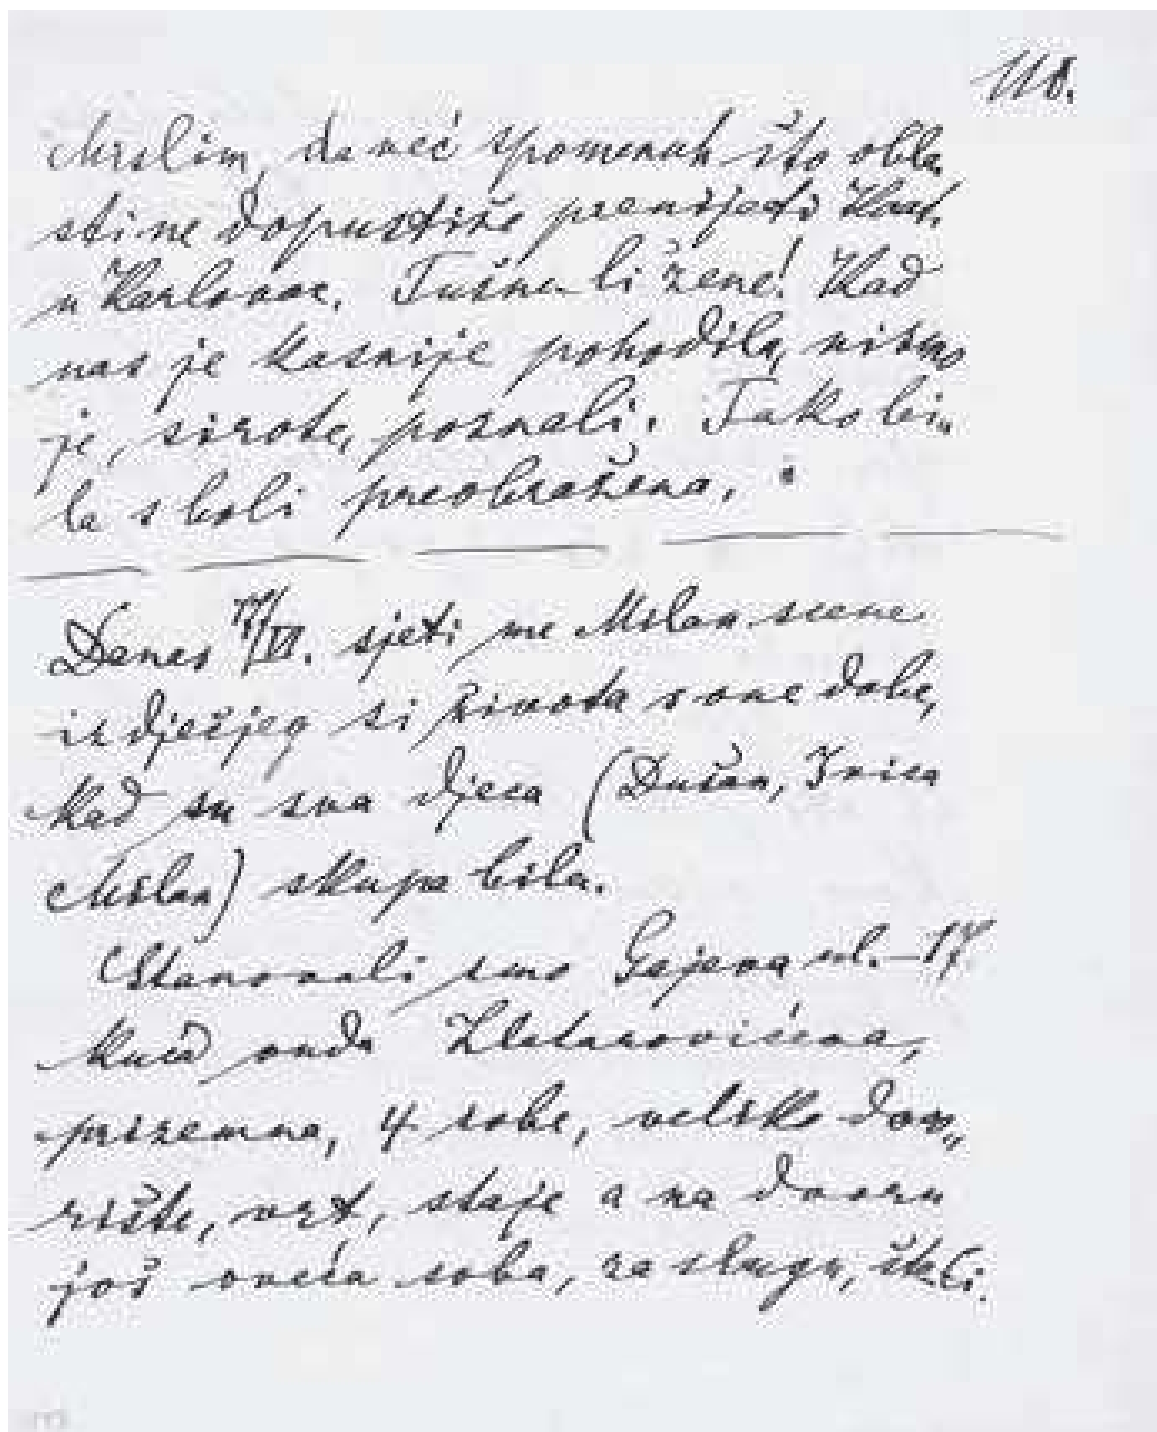 110.
Mislim, da već spomenuh što obla„
sti ne dopustiše prenijeti
u Karlovac. Tužna li žene! Kad
nas je kasnije pohodila, nismo
je, sirote, poznali. Tako bi„
la s boli preobražena.
Danas 17/VI. sjeti me Milan scene
iz dječjeg si života s one dobe,
kad su sva djeca (Dušan, Ivica
Milan) skupa bila.
Stanovali smo Gajeva ul. 17.
kuća onda Zlatarovićeva,
prizemna, 4 sobe, veliko dvo„
rište, vrt, staje a na dvoru
još oveća soba, za slugu,